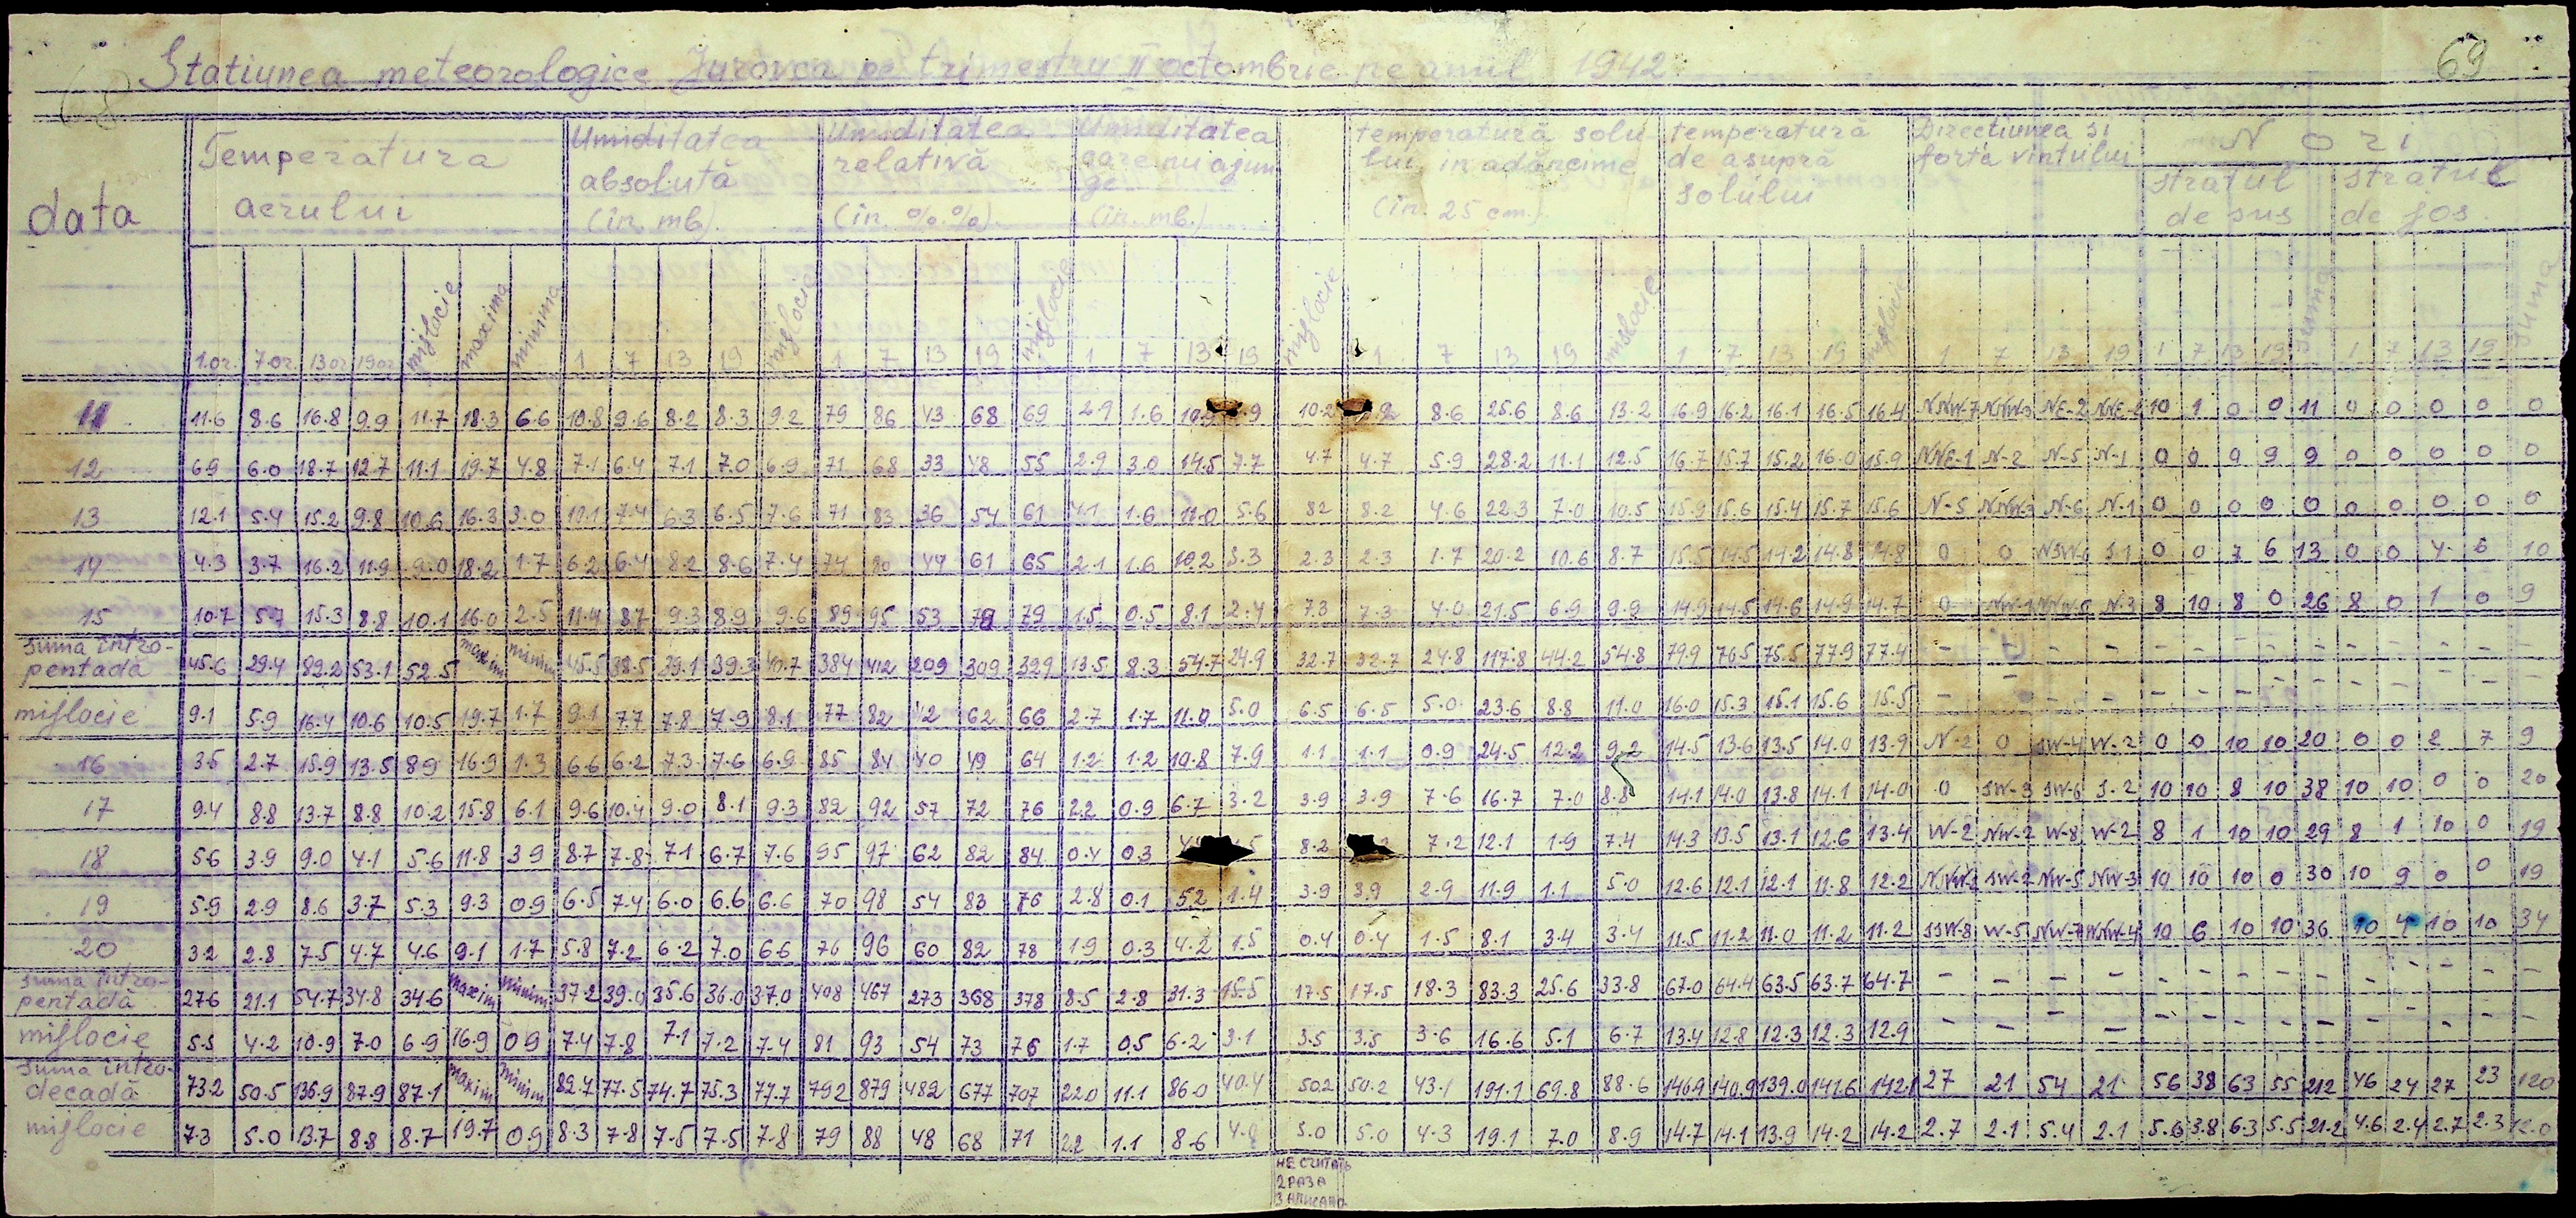 68 Statiunea meteorologice Jurovca pe trimestru II octombrie pe anul 1942 69
data Temperatura aerului Umiditatea absolută (în mb). Umiditatea relativă (în %.%) Umiditatea care nu ajunge (în mb.) temperatură solului in adâncime (în 25 cm.) temperatură de asupră solului Directiunea si forta vintului Nori
stratul de sus stratul de jos
1.or. 7.or. 13 or 19 or mijlocie maxima minima 1 7 13 19 mijlocie 1 7 13 19 mijlocie 1 7 13 19 mijlocie 1 7 13 19 mijlocie 1 7 13 19 mijlocie 1 7 13 19 1 7 13 19 suma 1 7 13 19 suma
11 11.6 8.6 16.8 9.9 11.7 18.3 6.6 10.8 9.6 8.2 8.3 9.2 79 86 43 68 69 2.9 1.6 10.9 10.2 8.6 25.6 8.6 13.2 16.9 16.2 16.1 16.5 16.4 NNW-7 NNW-3 NE-2 NNE-2 10 1 0 0 11 0 0 0 0 0
12 6.9 6.0 18.7 12.7 11.1 19.7 4.8 7.1 6.4 7.1 7.0 6.9 71 68 33 48 55 2.9 3.0 14.5 7.7 4.7 4.7 5.9 28.2 11.1 12.5 16.7 15.7 15.2 16.0 15.9 NNE-1 N-2 N-5 N-1 0 0 0 9 9 0 0 0 0 0
13 12.1 5.4 15.2 9.8 10.6 16.3 3.0 10.1 7.4 6.3 6.5 7.6 71 83 36 54 61 4.1 1.6 11.0 5.6 8.2 8.2 4.6 22.3 7.0 10.5 15.9 15.6 15.4 15.7 15.6 N-5 NNW-3 N-6 N-1 0 0 0 0 0 0 0 0 0 0
14 4.3 3.7 16.2 11.9 9.0 18.2 1.7 6.2 6.4 8.2 8.6 7.4 74 80 44 61 65 2.1 1.6 10.2 5.3 2.3 2.3 1.7 20.2 10.6 8.7 15.5 14.5 14.2 14.8 14.8 0 0 S-1 0 0 7 6 13 0 0 4 6 10
15 10.7 5.7 15.3 8.8 10.1 16.0 2.5 11.4 8.7 9.3 8.9 9.6 89 95 53 79 79 1.5 0.5 8.1 2.4 7.3 7.3 4.0 21.5 6.9 9.9 14.9 14.5 14.6 14.9 14.7 0 NW-1 NNW-5 N-3 8 10 8 0 26 8 0 1 0 9
suma intro-pentadă 45.6 29.4 82.2 53.1 52.5 maxim minim 45.5 38.5 39.1 39.3 40.7 384 412 209 309 329 13.5 8.3 54.7 24.9 32.7 32.7 24.8 117.8 44.2 54.8 79.9 76.5 75.5 77.9 77.4 - - - - - - - - - - - - - -
mijlocie 9.1 5.9 16.4 10.6 10.5 19.7 1.7 9.1 7.7 7.8 7.9 8.1 77 82 42 62 66 2.7 1.7 11.0 5.0 6.5 6.5 5.0 23.6 8.8 11.0 16.0 15.3 15.1 15.6 15.5 - - - - - - - - - - - - - -
16 3.5 2.7 15.9 13.5 8.9 16.9 1.3 6.6 6.2 7.3 7.6 6.9 85 84 40 49 64 1.2 1.2 10.8 7.9 1.1 1.1 0.9 24.5 12.2 9.2 14.5 13.6 13.5 14.0 13.9 N-2 0 SW-4 W-2 0 0 10 10 20 0 0 2 7 9
17 9.4 8.8 13.7 8.8 10.2 15.8 6.1 9.6 10.4 9.0 8.1 9.3 82 92 57 72 76 2.2 0.9 6.7 3.2 3.9 3.9 7.6 16.7 7.0 8.8 14.1 14.0 13.8 14.1 14.0 0 SW-3 SW-6 S-2 10 10 8 10 38 10 10 0 0 20
18 5.6 3.9 9.0 4.1 5.6 11.8 3.9 8.7 7.8 7.1 6.7 7.6 95 97 62 82 84 0.4 0.3 8.2 7.2 12.1 1.9 7.4 14.3 13.5 13.1 12.6 13.4 W-2 NW-2 W-8 W-2 8 1 10 10 29 8 1 10 0 19
19 5.9 2.9 8.6 3.7 5.3 9.3 0.9 6.5 7.4 6.0 6.6 6.6 70 98 54 83 76 2.8 0.1 5.2 1.4 3.9 3.9 2.9 11.9 1.1 5.0 12.6 12.1 12.1 11.8 12.2 NNW-2 SW-2 NW-5 NW-3 10 10 10 0 30 10 9 0 0 19
20 3.2 2.8 7.5 4.7 4.6 9.1 1.7 5.8 7.2 6.2 7.0 6.6 76 96 60 82 78 1.9 0.3 4.2 1.5 0.4 0.4 1.5 8.1 3.4 3.4 11.5 11.2 11.0 11.2 11.2 SSW-8 W-5 NW-7 WNW-4 10 6 10 10 36 10 4 10 10 34
suma intro-pentadă 27.6 21.1 54.7 34.8 34.6 maxim minim 37.2 39.0 35.6 36.0 37.0 408 467 273 368 378 8.5 2.8 31.3 15.5 17.5 17.5 18.3 83.3 25.6 33.8 67.0 64.4 63.5 63.7 64.7 - - - - - - - - - - - - - -
mijlocie 5.5 4.2 10.9 7.0 6.9 16.9 0.9 7.4 7.8 7.1 7.2 7.4 81 93 54 73 76 1.7 0.5 6.2 3.1 3.5 3.5 3.6 16.6 5.1 6.7 13.4 12.8 12.3 12.3 12.9 - - - - - - - - - - - - - -
suma intro-decadă 73.2 50.5 136.9 87.9 87.1 maxim minim 82.7 77.5 74.7 75.3 77.7 792 879 482 677 707 22.0 11.1 86.0 40.4 50.2 50.2 43.1 191.1 69.8 88.6 146.9 140.9 139.0 141.6 142.1 27 21 54 21 56 38 63 55 212 46 24 27 23 120
mijlocie 7.3 5.0 13.7 8.8 8.7 19.7 0.9 8.3 7.8 7.5 7.5 7.8 79 88 48 68 71 2.2 1.1 8.6 4.0 5.0 5.0 4.3 19.1 7.0 8.9 14.7 14.1 13.9 14.2 14.2 2.7 2.1 5.4 2.1 5.6 3.8 6.3 5.5 21.2 4.6 2.4 2.7 2.3 12.0
НЕ СЧИТАТЬ
2 РАЗА
ЗАПИСАНО